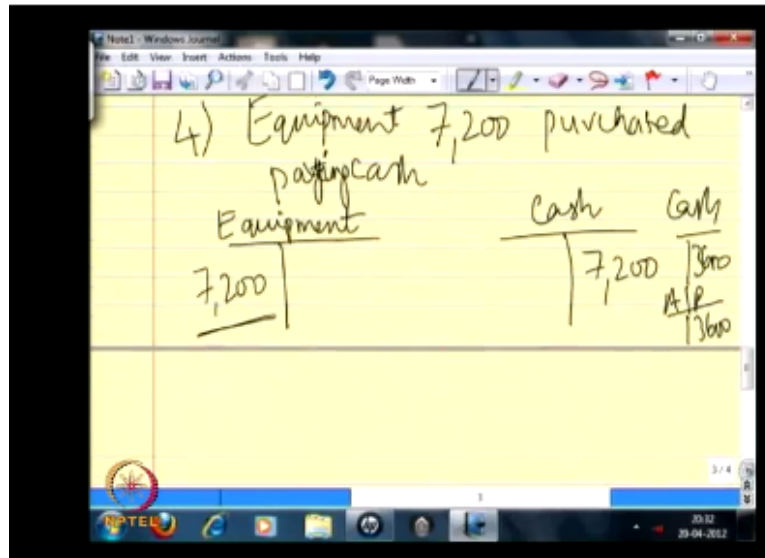 Note1 - Windows Journal
File Edit View Insert Actions Tools Help
Page Width
4) Equipment 7,200 purchased
paying cash
Equipment
Cash
Cash
7,200
7,200
3600
A P
3600
3 / 4
1
NPTEL
20:32
20-04-2012